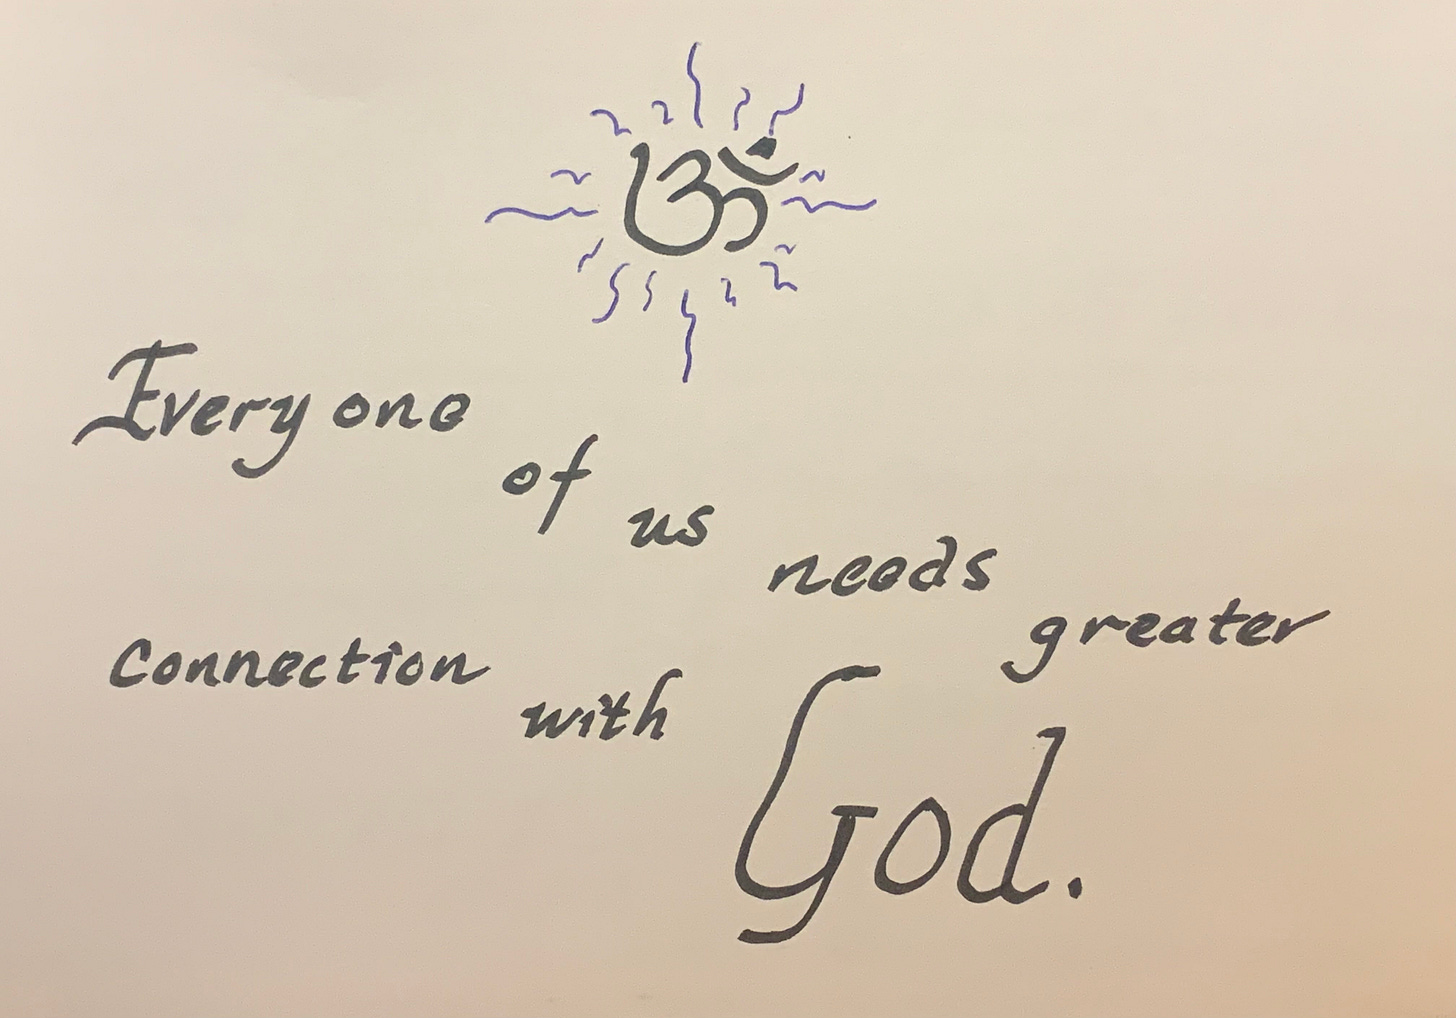 ॐ
Every one of us needs greater
Connection with God.